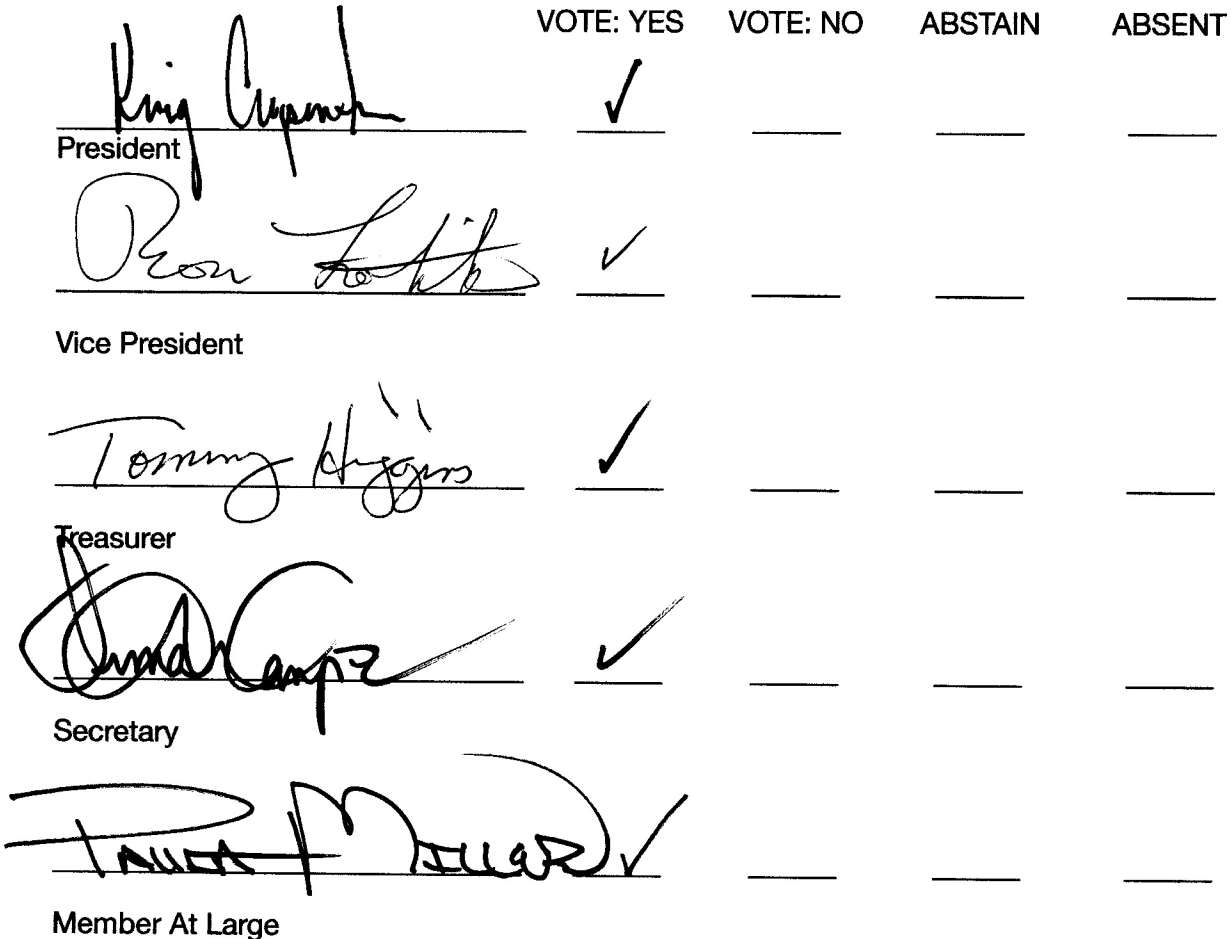 VOTE: YES VOTE: NO ABSTAIN ABSENT
✓
President
Ron ✓
Vice President
Tommy Higgins ✓
Treasurer
✓
Secretary
Paula Millar ✓
Member At Large